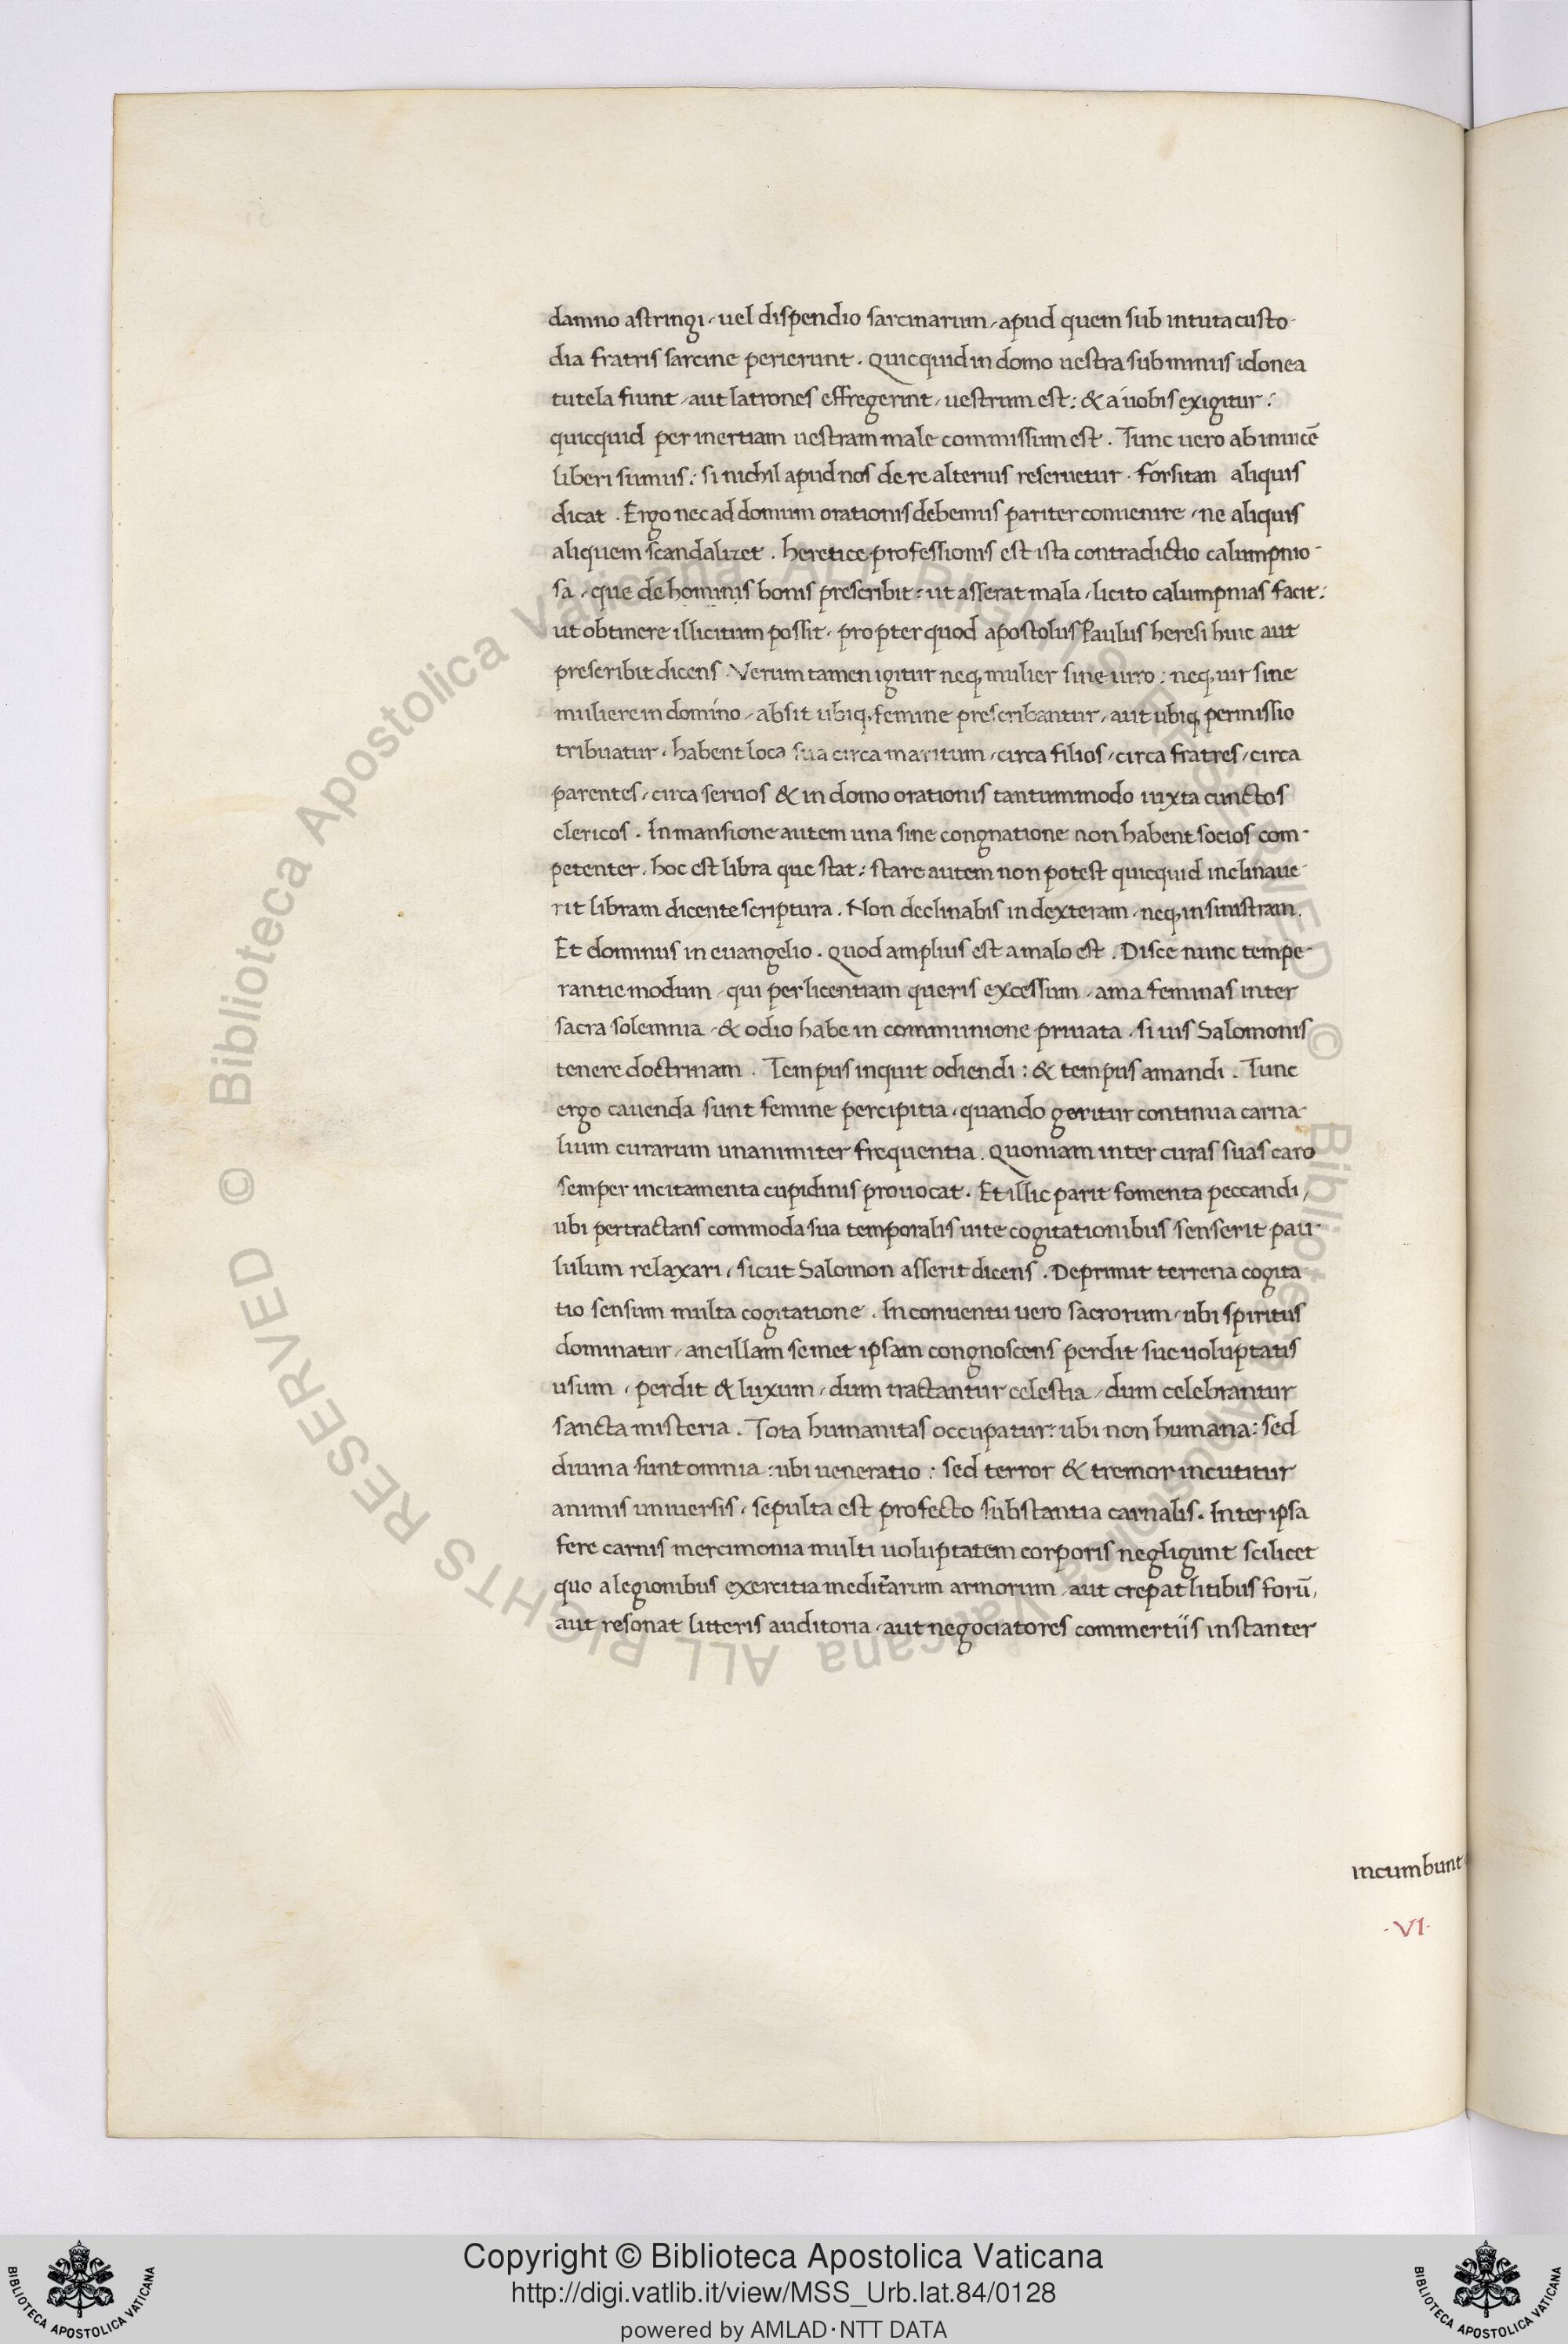 damno astringi, uel dispendio sarcinarum, apud quem sub intuta custo-
dia fratris sarcine perierunt. Quicquid in domo uestra sub minus idonea
tutela fiunt, aut latrones effregerint, uestrum est: & a uobis exigitur:
quicquid per inertiam uestram male commissum est. Tunc uero ab inuicē
liberi sumus: si nichil apud nos de re alterius reseruetur. forsitan aliquis
dicat. Ergo nec ad domum orationis debemus pariter conuenire, ne aliquis
aliquem scandalizet. heretice professionis est ista contradictio calumpnio-
sa, que de hominis bonis prescribit: ut asserat mala, licito calumpnias facit:
ut obtinere illicitum possit, propter quod apostolus Paulus heresi huic aut
prescribit dicens. Verum tamen igitur neq; mulier sine uiro: neq; uir sine
muliere in domino, absit ubiq; femine prescribantur, aut ubiq; permissio
tribuatur, habent loca sua circa maritum, circa filios, circa fratres, circa
parentes, circa seruos & in domo orationis tantummodo iuxta cunctos
clericos. In mansione autem una sine congnatione non habent socios com-
petenter, hoc est libra que stat: stare autem non potest quicquid inclinaue-
rit libram dicente scriptura. Non declinabis in dexteram, neq; in sinistram.
Et dominus in euangelio. Quod amplius est a malo est. Disce nunc tempe-
rantie modum, qui per licentiam queris excessum, ama feminas inter
sacra solemnia, & odio habe in communione priuata, si uis Salomonis
tenere doctrinam. Tempus inquit odiendi: & tempus amandi. Tunc
ergo cauenda sunt femine percipitia, quando geritur continua carna-
lium curarum unanimiter frequentia. Quoniam inter curas suas caro
semper incitamenta cupidinis prouocat. Et illic parit fomenta peccandi,
ubi pertractans commoda sua temporalis uite cogitationibus senserit pau-
lulum relaxari, sicut Salomon asserit dicens. Deprimit terrena cogita
tio sensum multa cogitatione. In conuentu uero sacrorum, ubi spiritus
dominatur, ancillam semet ipsam congnoscens perdit sue uoluptatis
usum, perdit & luxum, dum tractantur celestia, dum celebrantur
sancta misteria. Tota humanitas occupatur: ubi non humana: sed
diuina sunt omnia: ubi ueneratio: sed terror & tremor incutitur
animis uniuersis, sepulta est profecto substantia carnalis. Inter ipsa
fere carnis mercimonia multi uoluptatem corporis negligunt scilicet
quo a legionibus exercitia meditarum armorum, aut crepat litibus forū,
aut resonat litteris auditoria, aut negociatores commertiis instanter
incumbunt
·VI·
© Biblioteca Apostolica Vaticana ALL RIGHTS RESERVED © Biblioteca Apostolica Vaticana ALL RIGHTS RESERVED
Copyright © Biblioteca Apostolica Vaticana
http://digi.vatlib.it/view/MSS_Urb.lat.84/0128
powered by AMLAD·NTT DATA
BIBLIOTECA APOSTOLICA VATICANA
BIBLIOTECA APOSTOLICA VATICANA